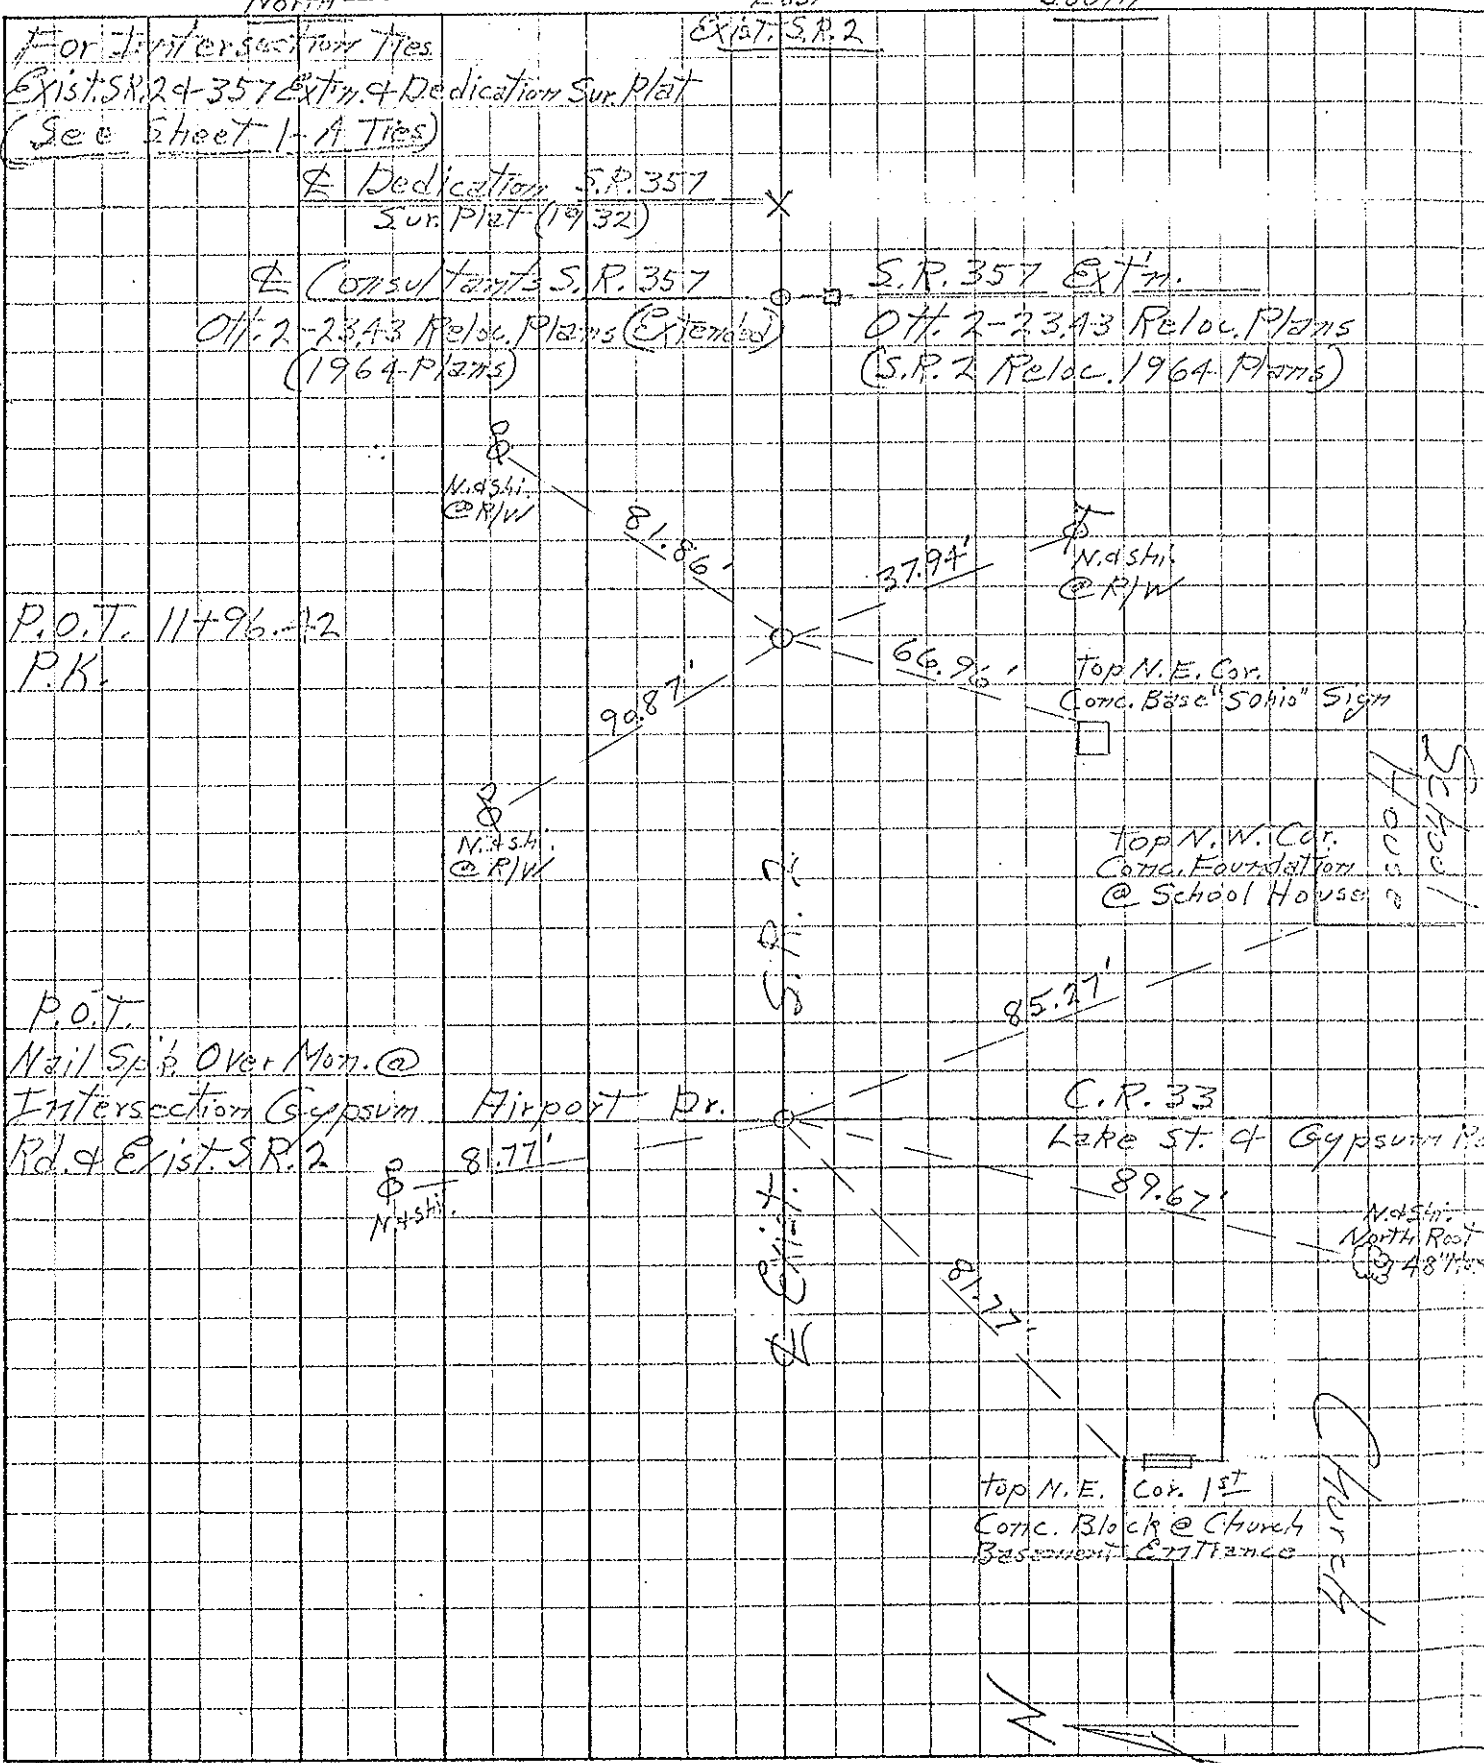 North
East
South
Exist. S.R. 2
For Intersection Ties
Exist. S.R. 2 & 357 Extn. & Dedication Sur. Plat
(See Sheet 1-A Ties)
℄ Dedication S.R. 357
Sur. Plat (1932)
℄ Consultants S.R. 357
Ott. 2-23.43 Reloc. Plans (Extended)
(1964 Plans)
S.R. 357 Ext'n.
Ott. 2-23.43 Reloc. Plans
(S.R. 2 Reloc. 1964 Plans)
N. & Shi.
@ R/W
81.86'
37.94'
N. & Shi.
@ R/W
P.O.T. 11+96.42
P.K.
66.96'
Top N.E. Cor.
Conc. Base "Sohio" Sign
90.87'
N. & Sh.
@ R/W
School
House
Top N.W. Cor.
Conc. Foundation
@ School House
85.27'
P.O.T.
Nail Sp'k Over Mon. @
Intersection Gypsum
Rd. & Exist. S.R. 2
Airport Dr.
81.77'
N. & Shi.
℄ Exist. S.R. 2
C.R. 33
Lake St. & Gypsum
89.67'
N. & Shi.
North Root
48"
81.77'
Top N.E. Cor. 1st
Conc. Block @ Church
Basement Entrance
Church
N